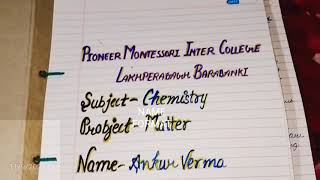 Pioneer Montessori Inter College
Lakhperabagh Barabanki
Subject- Chemistry
Probject- Matter
Name- Ankur Verma
NAME